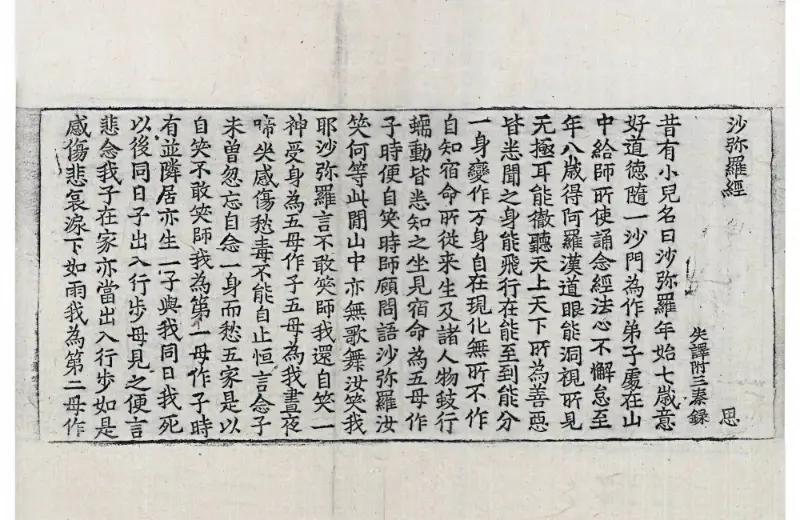 沙弥羅經 思
失譯附三秦録
昔有小兒名曰沙弥羅年始七歲意
好道德隨一沙門為作弟子處在山
中給師所使誦念經法心不懈怠至
年八歲得阿羅漢道眼能洞視所見
无極耳能徹聽天上天下所為善惡
皆悉聞之身能飛行在能至到能分
一身變作万身自在現化無所不作
自知宿命所從来生及諸人物蚑行
蠕動皆悉知之坐見宿命為五母作
子時便自笑時師顧問語沙弥羅汝
笑何等此間山中亦無歌舞汝笑我
耶沙弥羅言不敢笑師我還自笑一
神受身為五母作子五母為我晝夜
啼㘴感傷愁毒不能自止恒言念子
未曾忽忘自念一身而愁五家是以
自笑不敢笑師我為第一母作子時
有並隣居亦生一子與我同日我死
以後同日子出入行步母見之便言
悲念我子在家亦當出入行步如是
感傷悲哀淚下如雨我為第二母作